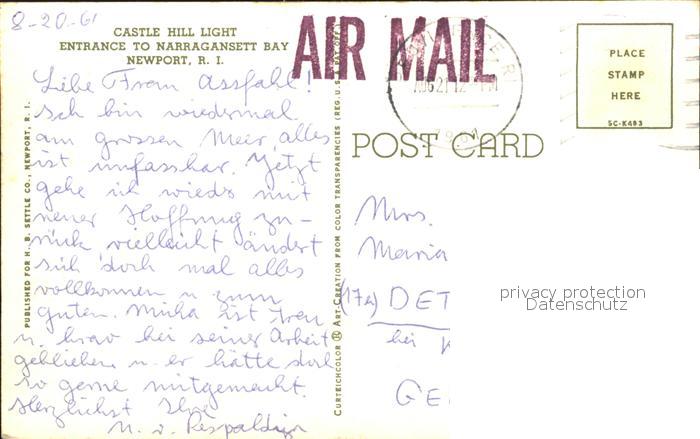 8-20-61
CASTLE HILL LIGHT
ENTRANCE TO NARRAGANSETT BAY
NEWPORT, R. I.
AIR MAIL
AUG 21 12
1961
PLACE
STAMP
HERE
5C-K483
POST CARD
Liebe Frau Assfahl!
Ich bin wiedermal
am grossen Meer, alles
ist unfassbar. Jetzt
gehe ich wieder mit
neuer Hoffnung zu-
rück vielleicht ändert
sich doch mal alles
vollkommen u. zum
guten. Mucha ist treu
u. brav bei seiner Arbeit
geblieben u. er hätte doch
so gerne mitgemacht.
Herzlichst Ihre
M. v.
PUBLISHED FOR H. B. SETTLE CO., NEWPORT, R. I.
CURTEICHCOLOR ® ART-CREATION FROM COLOR TRANSPARENCIES (REG. U.S.
Mrs.
Maria
(17a) DET
bei
GE
privacy protection
Datenschutz